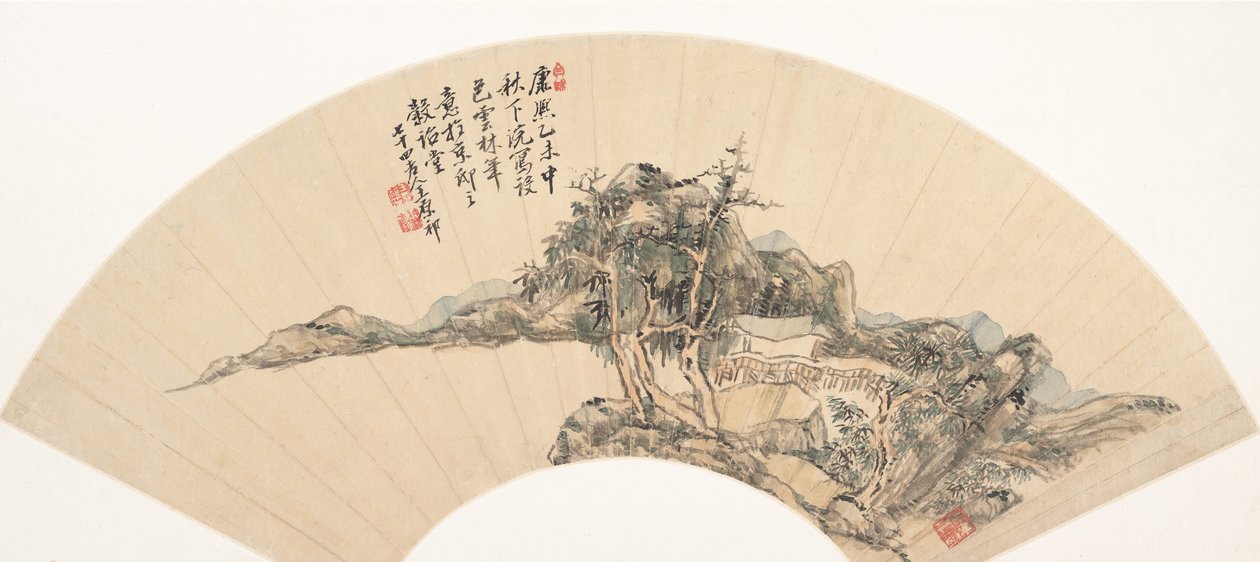 康熙乙未中
秋下浣寫設
色雲林筆
意於京邸之
穀詒堂
七十四老人王原祁